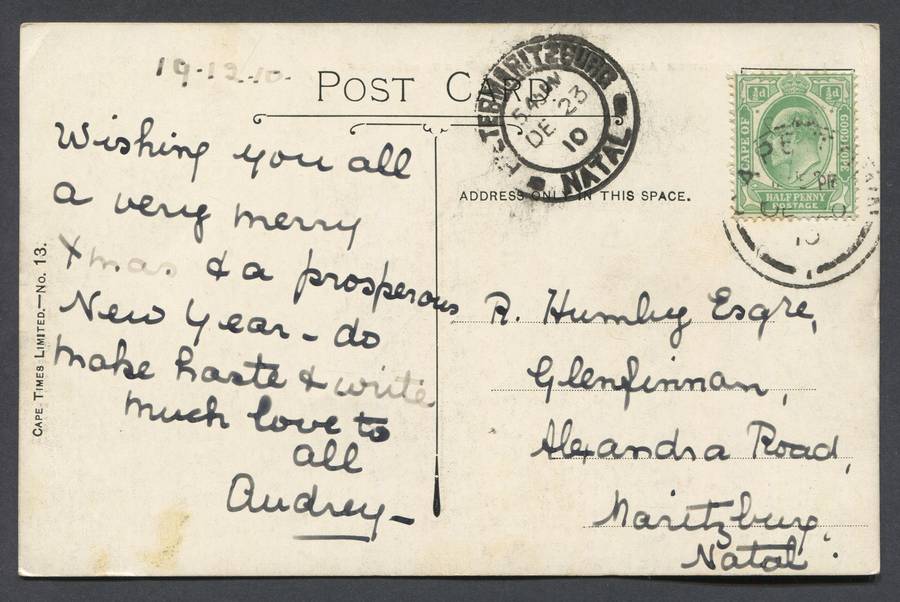 19.12.10.
POST CARD
Wishing you all
a very merry
Xmas & a prosperous
New Year - do
make haste & write
much love to
all
Audrey -
CAPE TIMES LIMITED.—No. 13.
PIETERMARITZBURG
5 AM
DE 23
10
NATAL
ADDRESS ONLY IN THIS SPACE.
½d ½d
CAPE OF GOOD HOPE
HALF PENNY
POSTAGE
10
R. Humby Esqre,
Glenfinnan,
Alexandra Road,
Maritzburg.
Natal.